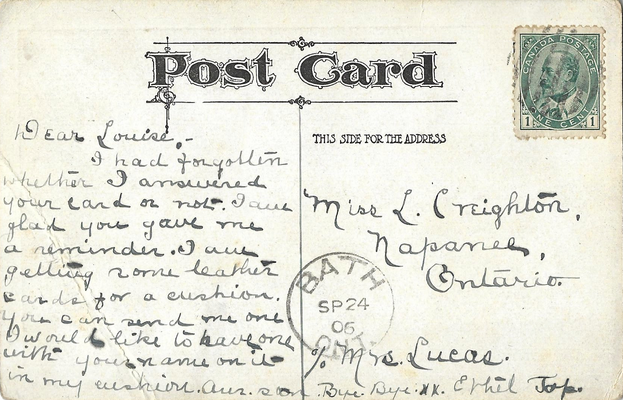 Post Card
CANADA POSTAGE
1 ONE CENT 1
THIS SIDE FOR THE ADDRESS
Dear Louise,-
I had forgotten
whether I answered
your card or not. I am
glad you gave me
a reminder. I am
getting some leather
cards for a cushion.
You can send me one
I would like to have one
with your name on it
in my cushion. Ans. soon. Bye. Bye. xx. Ethel
Miss L. Creighton,
Napanee,
Ontario.
c/o Mrs. Lucas.
BATH
SP 24
06
ONT.